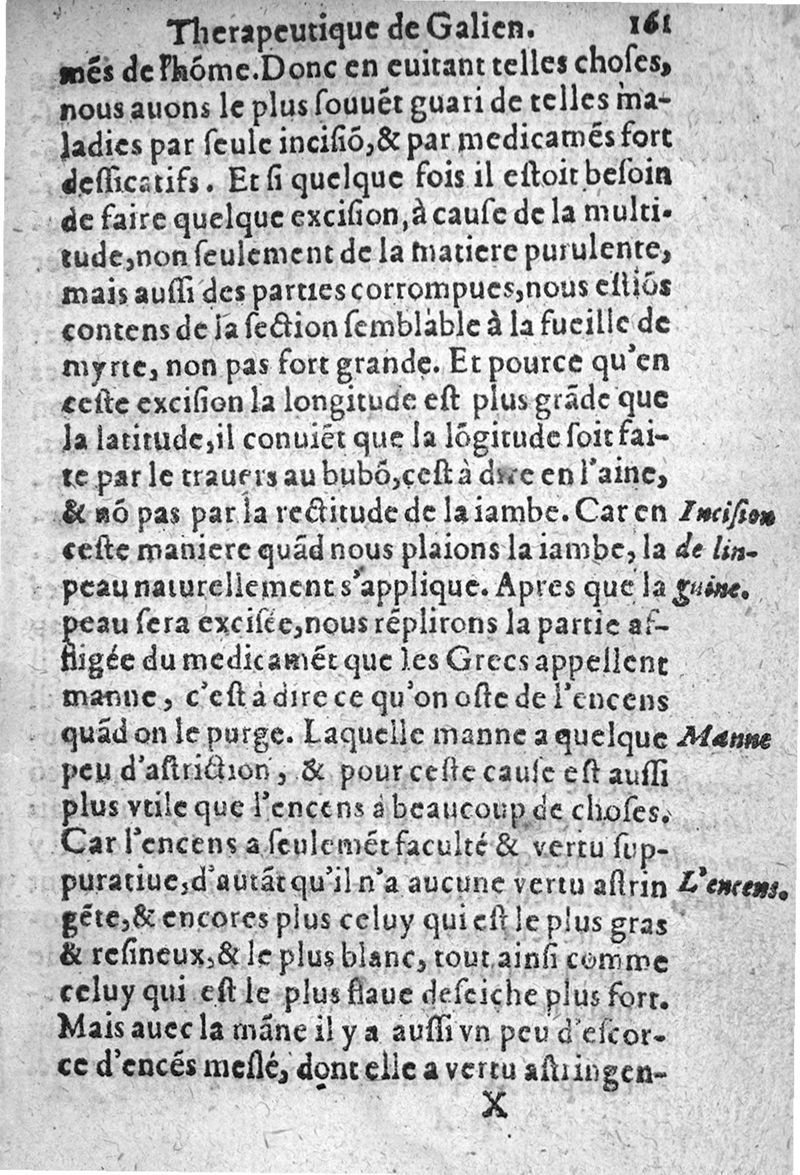 Therapeutique de Galien. 161
més de l'hõme. Donc en euitant telles choſes,
nous auons le plus ſouuẽt guari de telles ma-
ladies par ſeule inciſiõ, & par medicamẽs fort
deſſicatifs. Et ſi quelque fois il eſtoit beſoin
de faire quelque exciſion, à cauſe de la multi-
tude, non ſeulement de la matiere purulente,
mais auſſi des parties corrompues, nous eſtiõs
contens de la ſection ſemblable à la fueille de
myrte, non pas fort grande. Et pource qu'en
ceſte exciſion la longitude eſt plus grãde que
la latitude, il conuiẽt que la lõgitude ſoit fai-
te par le trauers au bubõ, ceſt à dire en l'aine,
& nõ pas par la rectitude de la iambe. Car en
Inciſion
ceſte maniere quãd nous plaions la iambe, la
de lin-
peau naturellement s'applique. Apres que la
guine.
peau ſera exciſée, nous rẽplirons la partie af-
fligée du medicamẽt que les Grecs appellent
manne, c'eſt à dire ce qu'on oſte de l'encens
quãd on le purge. Laquelle manne a quelque
Manne
peu d'aſtriction, & pour ceſte cauſe eſt auſſi
plus vtile que l'encens à beaucoup de choſes.
Car l'encens a ſeulemẽt faculté & vertu ſup-
puratiue, d'autãt qu'il n'a aucune vertu aſtrin
L'encens.
gẽte, & encores plus celuy qui eſt le plus gras
& reſineux, & le plus blanc, tout ainſi comme
celuy qui eſt le plus flaue deſeiche plus fort.
Mais auec la mãne il y a auſſi vn peu d'eſcor-
ce d'encẽs meſlé, dont elle a vertu aſtringen-
X